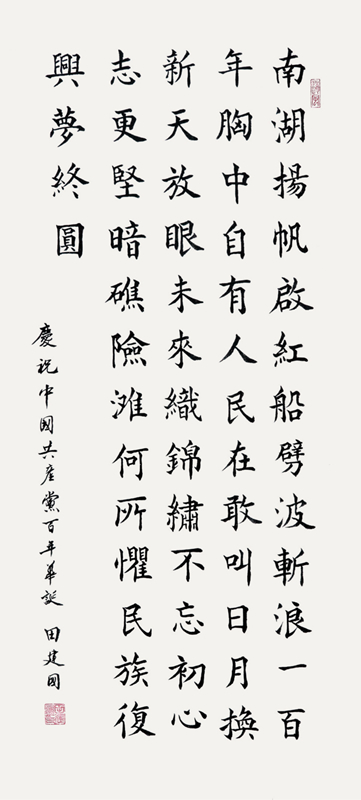 南湖揚帆啟紅船劈波斬浪一百
年胸中自有人民在敢叫日月換
新天放眼未來織錦繡不忘初心
志更堅暗礁險滩何所懼民族復
興夢終圓
慶祝中國共產黨百年華誕 田建國